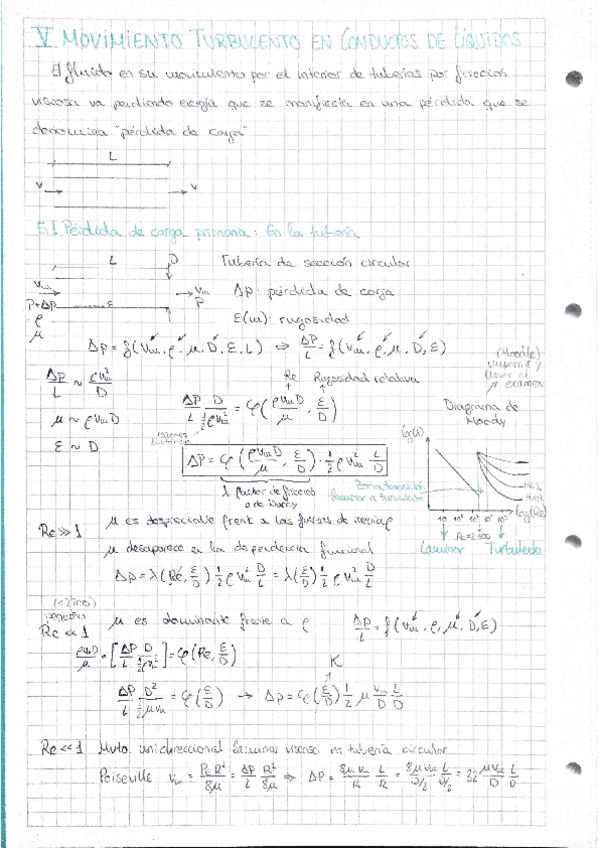 V MOVIMIENTO TURBULENTO EN CONDUCTOS DE LÍQUIDOS
El fluido en su movimiento por el interior de tuberías por fricción
viscosa va perdiendo energía que se manifiesta en una pérdida que se
denomina "pérdida de carga"
L
V V
5.1 Pérdida de carga primaria: En la tubería
L D Tubería de sección circular
Vm Vm Δp: pérdida de carga
P+Δp ε P
ρ ε(m): rugosidad
μ
Δp = f(Vm, ρ, μ, D, ε, L) ⇒ Δp/L = f(Vm, ρ, μ, D, ε)
(Moodle)
imprimir y
llevar al
examen
Re Rugosidad relativa
Δp/L ~ ρVm²/D
Δp/L D/(½ρVm²) = φ(ρVmD/μ, ε/D)
Diagrama de
Moody
μ ~ ρVmD
ε ~ D
Δp = φ(ρVmD/μ, ε/D) · ½ρVm² L/D
log(λ)
Zona transición
laminar a turbulento
λ factor de fricción
o de Darcy
log(Re)
10 10² 10³
Re=2300
Laminar Turbulento
Re >> 1 μ es despreciable frente a las fuerzas de inercia ρ
μ desaparece en la dependencia funcional
Δp = λ(Re, ε/D) ½ρVm² D/L = λ(ε/D) ½ρVm² D/L
(<2300)
pequeños
Re << 1 μ es dominante frente a ρ Δp/L = f(Vm, ρ, μ, D, ε)
ρVmD/μ · [Δp/L D/(½ρVm²)] = φ(Re, ε/D)
K
Δp/L D²/(½μVm) = φ(ε/D) → Δp = φ(ε/D) ½ μ Vm/D L/D
Re << 1 Mvto. unidireccional laminar viscoso en tubería circular
Poiseville Vm = PeR²/8μ = Δp/L R²/8μ ⇒ Δp = 8μVm/R L/R = 8μVm/D/2 L/D/2 = 32 μVm/D L/D